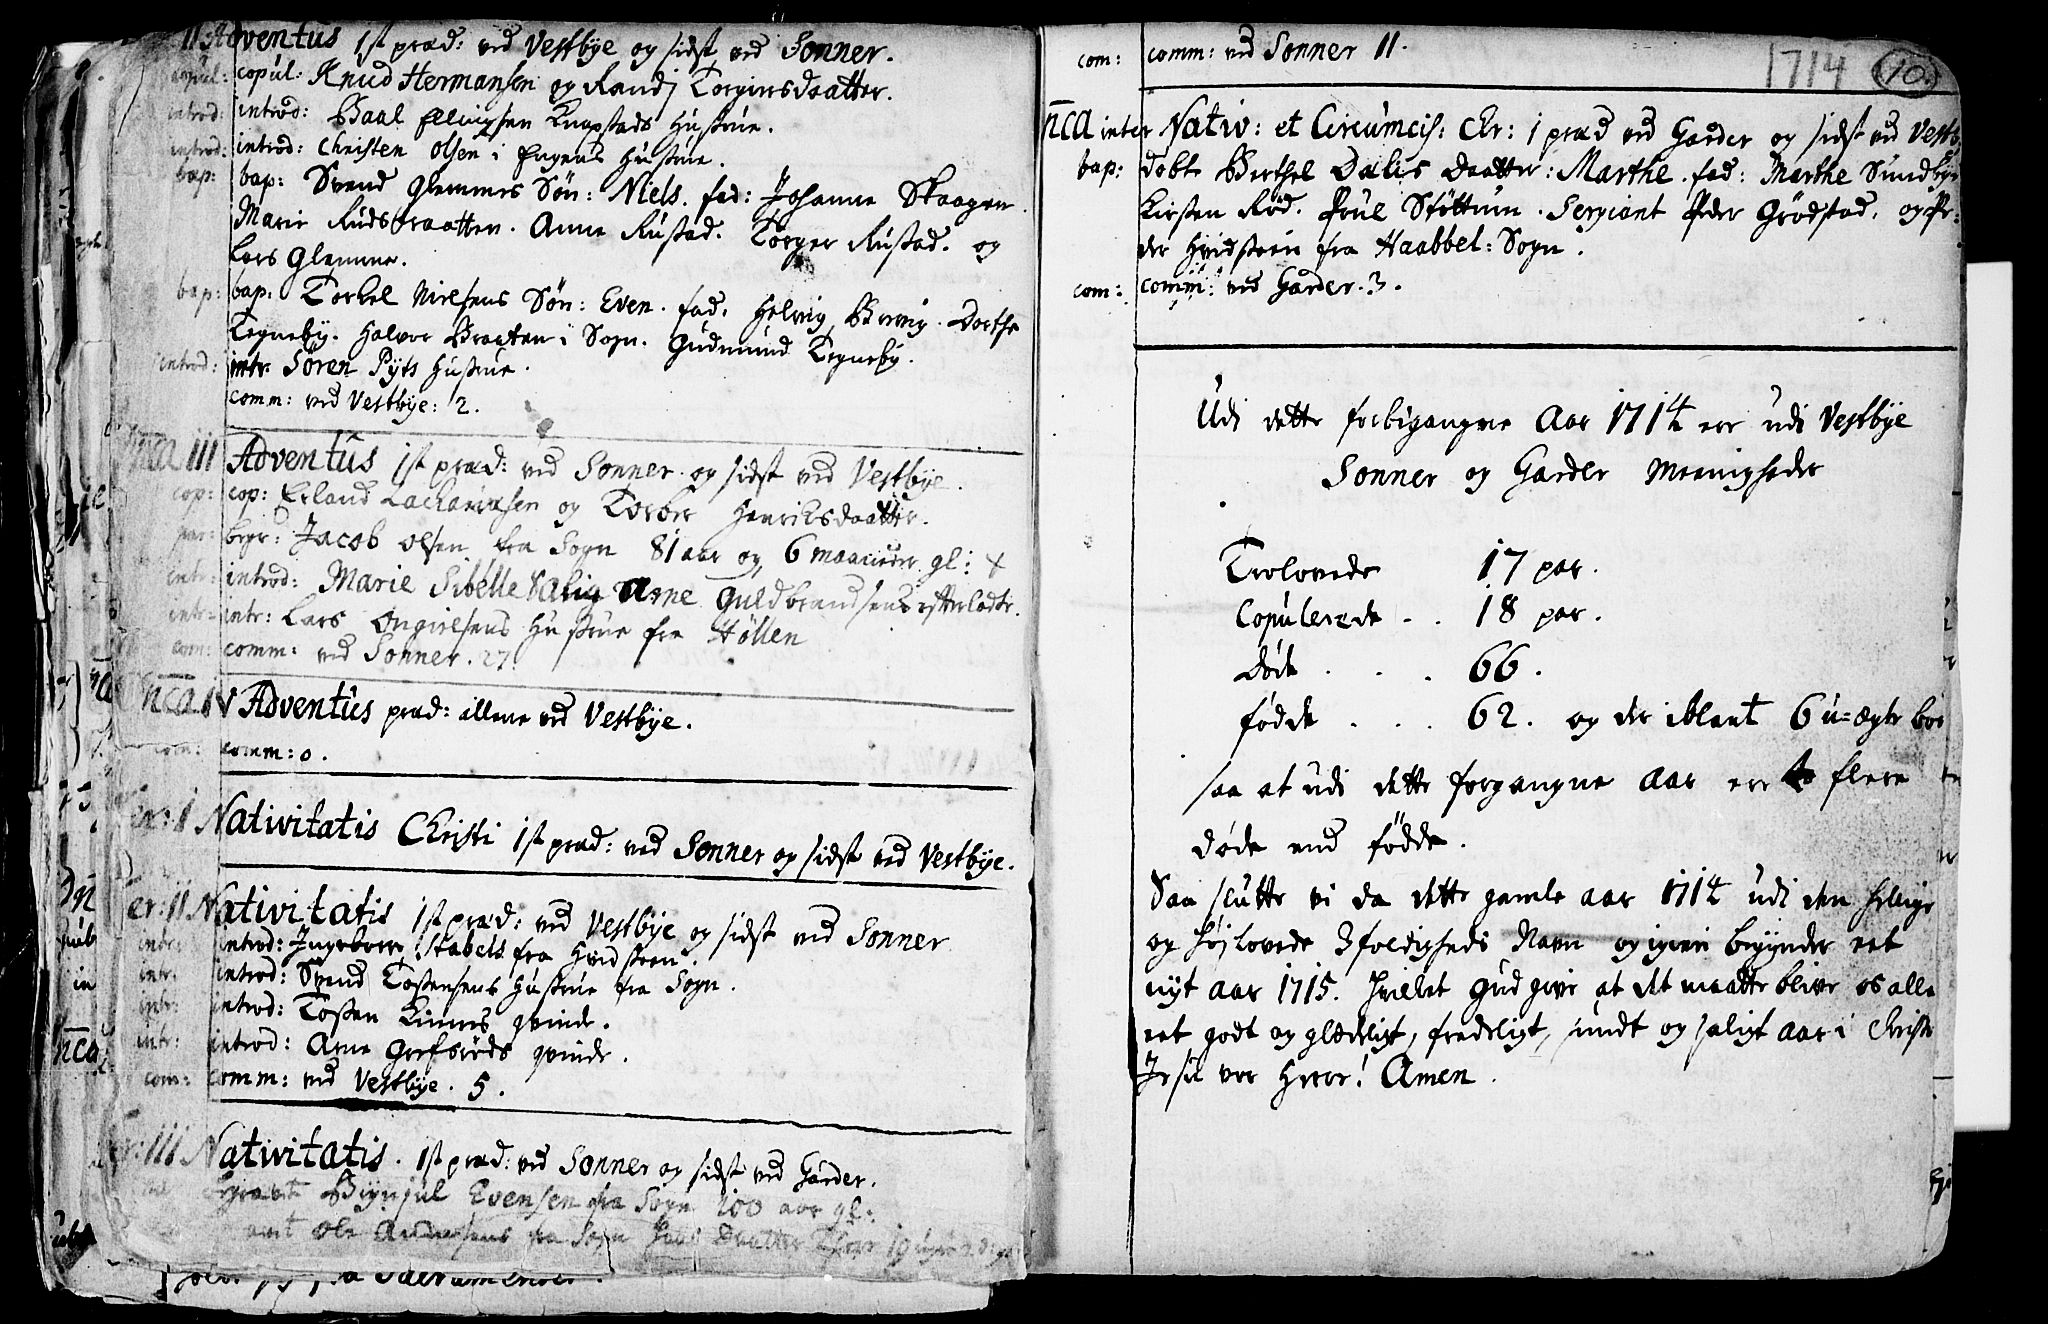 II Adventus 1st præd: ved Vestbye og sidst ved Sonner.
copul: copul: Knud Hermansen og Randj Torgiersdaatter.
introd: introd: Paal Ellingsen Knapstads Hustrue.
introd: introd: Christen Olsen i Engens Hustrue.
bap: bap: Svend Glemmes Søn: Niels. fad: Johanne Skaagen
Marie Ruds daatter. Anne Rustad. Torger Rustad. og
Lars Glemme.
bap: bap: Torkel Nielsens Søn: Even. fad: Helvig Brevig. Dorthe
Tegneby. Halvor Braaten i Sogn. Gudmund Tegneby.
introd: intr. Sören Pyts Hustrue.
comm: ved Vestbye: 2.
nca III Adventus 1st præd: ved Sonner og sidst ved Vestbye.
cop: cop: Erland Zachariasen og Torbor Henriksdaatter.
begr: Jacob Olsen fra Sogn 81 aar og 6 maaneder gl:
intr: introd: Marie Sibelle Salig Arne Guldbrandsens efterladte.
intr: intr: Lars Hustrue fra Höllen
com: comm: ved Sonner. 27.
nca IV Adventus præd: allene ved Vestbye.
com: comm: 0.
Fer: I Nativitatis Christi 1st præd: ved Sonner og sidst ved Vestbye.
Fer: II Nativitatis 1st præd: ved Vestbye og sidst ved Sonner
intr: introd: Ingeborre Stabels fra Hvidsteen.
intr: introd: Svend Tostensens Hustrue fra Sogn.
intr: introd: Tosten Kinnes qvinde.
intr: introd: Arne Grefsröds qvinde.
com: comm: ved Vestbye. 5.
Fer: III Nativitatis. 1st præd: ved Sonner og sidst ved Garder.
Evensen fra Sogn 100 aar gl:
Ole Andersens fra Sogn
Sacramentet.
1714 10
com: comm: ved Sonner 11.
nca inter Nativ: et Circumcis: Chr: 1 præd ved Garder og sidst ved Vestb
bap: döbt Berthel Dalis Daatter: Marthe. fad: Marthe Sundbye
Kirsten Röd. Poul Stöttum. Sergiant Peder Grödstad. og Pe-
der Hvidsteen fra Haabbel: Sogn.
com: comm: ved Garder. 3.
Udi dette forbigangne Aar 1714 ere udi Vestbye
Sonner og Garder Meenigheder
Trolovede 17 par.
Copulerede . . 18 par.
Döde . . . 66.
födde . . . 62. og der iblant 6 u=ægte bör
saa at udi dette forgangne Aar ere flere
döde end födde.
Saa slutte vi da dette gamle aar 1714 udi den hellige
og höjlovede 3foldigheds Navn og igien begynder eet
nyt aar 1715. hvilket Gud give at det maatte blive os alle
eet godt og glædeligt, fredeligt, sundt og saligt aar i Christo
Jesu vor Herre! Amen.